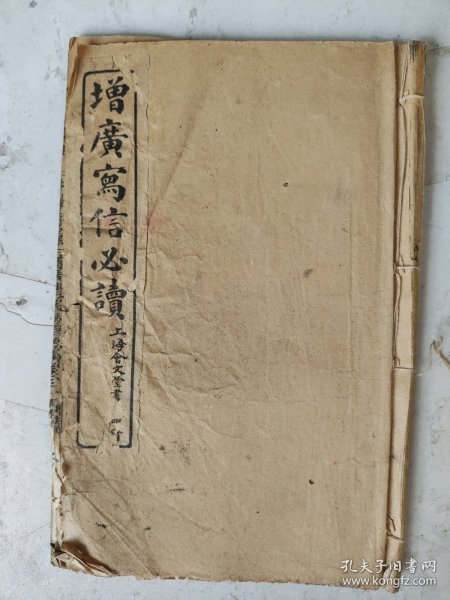 增廣寫信必讀
上海會文堂書
印
孔夫子旧书网
www.kongfz.com